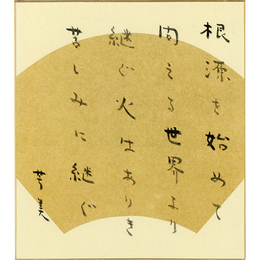 根源を始めて
問える世界より
継ぐ火はありき
苦しみに継ぐ
芳美